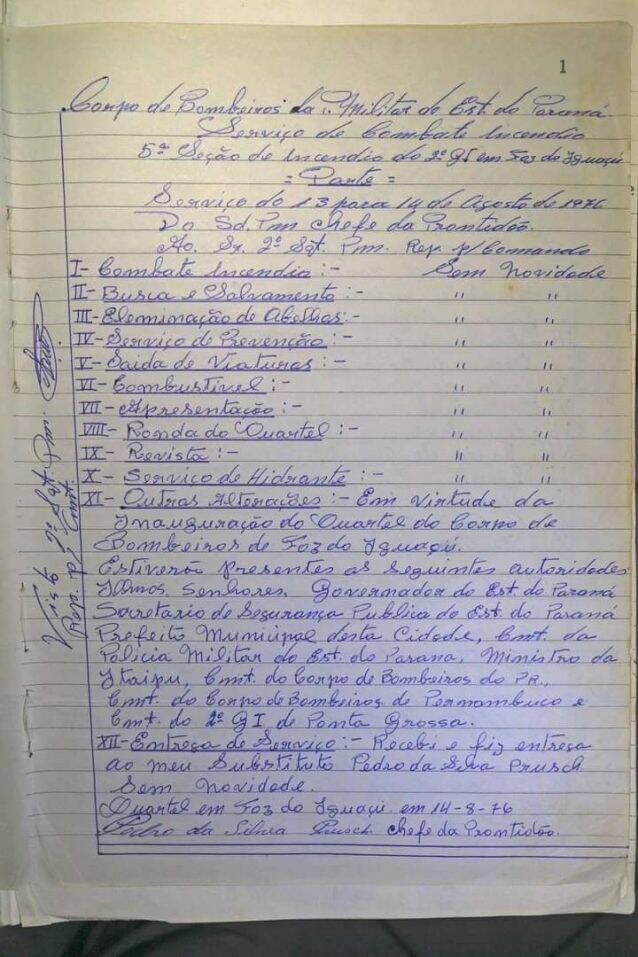 1
Corpo de Bombeiros da P. Militar do Est. do Paraná
Serviço de Combate Incendio
5ª Seção de Incendio do 2º GI em Foz do Iguaçú
= Parte =
Serviço do 13 para 14 de Agosto de 1976
Do Sd. Pm Chefe da Prontidão.
Ao. Sr. 2º Sgt. Pm. Rep. p/ Comando
I- Combate Incendio :- Sem novidade
II- Busca e Salvamento :- " "
III- Eleminação de Abelhas :- " "
IV- Serviço de Prevenção :- " "
V- Saida de Viaturas :- " "
VI- Combustivel :- " "
VII- Apresentação :- " "
VIII- Ronda do Quartel :- " "
IX- Revista :- " "
X- Serviço de Hidrante :- " "
XI- Outras Alterações :- Em virtude da
Inauguração do Quartel do Corpo de
Bombeiros de Foz do Iguaçú.
Estiverão presentes as seguintes autoridades
Ilmos. Senhores. Governador do Est. do Paraná
Secretario de Segurança Publica do Est. do Paraná
Prefeito Municipal desta Cidade, Cmt. da
Policia Militar do Est. do Parana, Ministro da
Itaipu, Cmt. do Corpo de Bombeiros do PR.,
Cmt. do Corpo de Bombeiros de Pernambuco e
Cmt. do 2º GI de Ponta Grossa.
XII- Entrega de Serviço :- Recebi e fiz entrega
ao meu Substituto Pedro da Silva Prusch
Sem novidade.
Quartel em Foz do Iguaçú em 14-8-76
Pedro da Silva Prusch Chefe da Prontidão.
Sgt. Pm.
Rep. do Cmt.